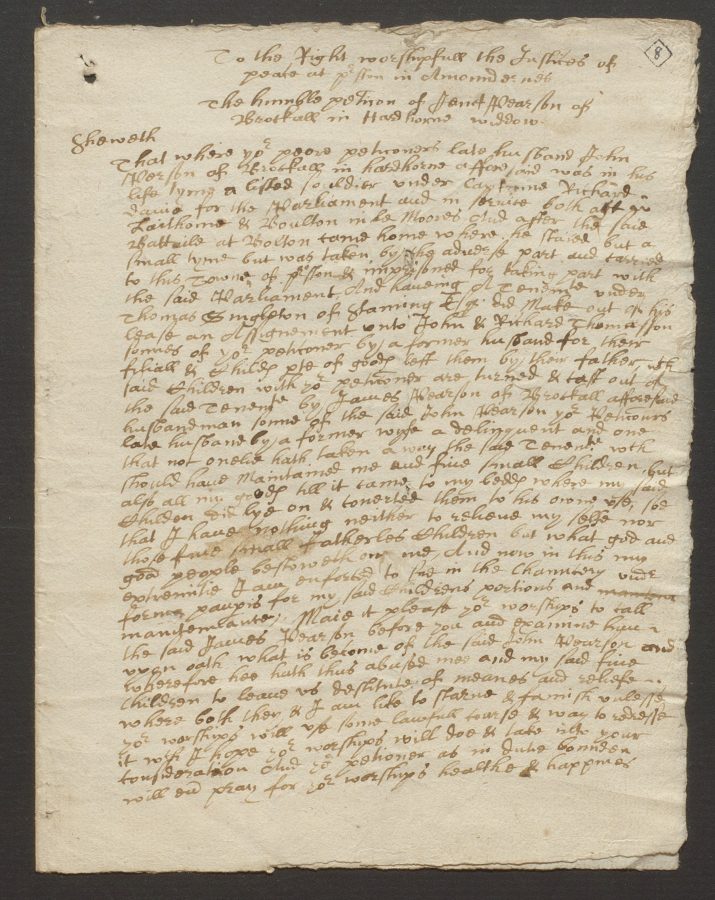 8
To the Right worshipfull the Justices of
peace at p'ston in Amoundernes
The humble peticon of Jenet Pearson of
Brockall in Hardhorne widdow
Sheweth
That where yor poore peticoners late husband John
Pearson of Brockall in hardhorne afforesaid was in his
life tyme a listed souldier under Captaine Richard
davie for the Parliament and in service both att
Laithome & Boulton in le Moores And after the said
Battaile at Bolton came home where he staied but a
small tyme but was taken by the adverse part and carried
to this Towne of p'ston & imprisoned for taking part with
the said Parliament, And haveing A Tenemte under
Thomas Singleton of Staining Esqr did Make out of his
lease an Assignement unto John & Richard Thomasson
sonnes of yor peticoner by a former husband for their
filiall & Childs pte of goods left them by their father, wch
said Children with yor peticoner are turned & cast out of
the said Tenemte by James Pearson of Brockall afforesaid
husbandman sonne of the said John Pearson yor Peticors
late husband by a former wyfe a delinquent and one
that not onelie hath taken away the said Tenemte wch
should have Maintained me and five small Children, but
also all my goods till it came to my bedds where my said
Children did lye on & converted them to his owne use, soe
that I have nothing neither to relieve my selfe nor
those five small Fatherles Children but what god and
good people bestoweth on me, And now in this my
extremitie I am enforced to sue in the Chancery undr
forma paupis for my said Childrens portions and
mantenance, Maie it please yor worships to call
the said James Pearson before you and examine him
upon oath what is become of the said John Pearson and
wherefore hee hath thus abused mee and my said five
Children to leave us destitute of meanes and reliefe
where both they & I am like to starve & famish unlesse
yor worships will use some lawfull course & way to redresse
it wch I hope yor worships will doe & take into your
consideration And yor petioner as in dutie bounden
will eur pray for yor worships healthe & happines